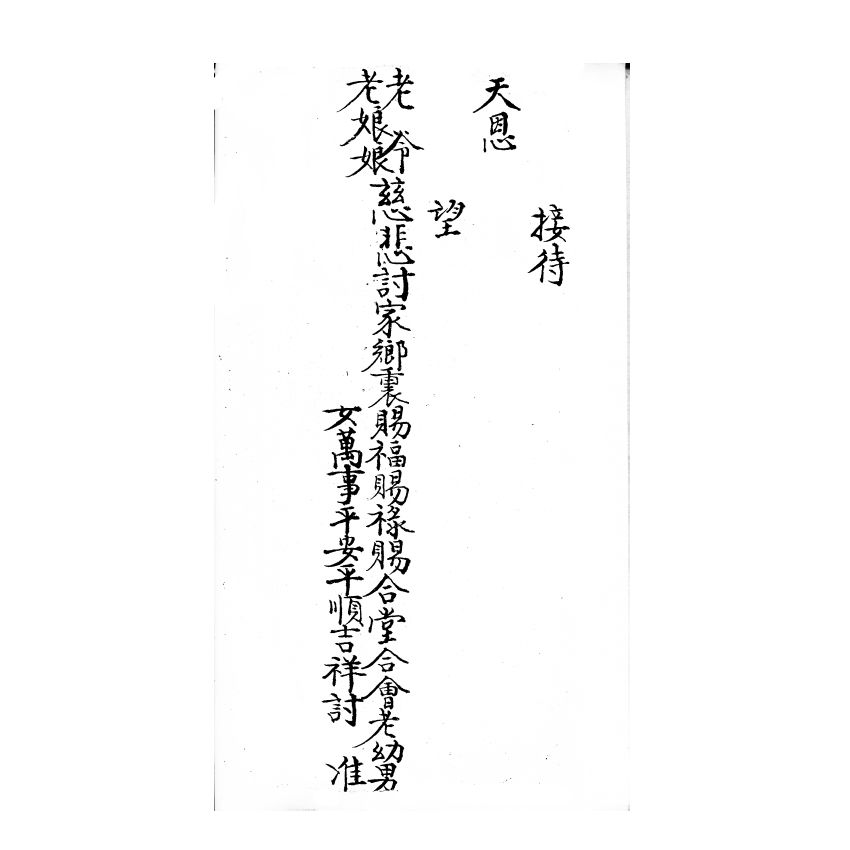 接待
天恩
望
老爷
老娘娘
慈悲討家鄉裏賜福賜祿賜合堂合會老幼男
女萬事平安平順吉祥討 准